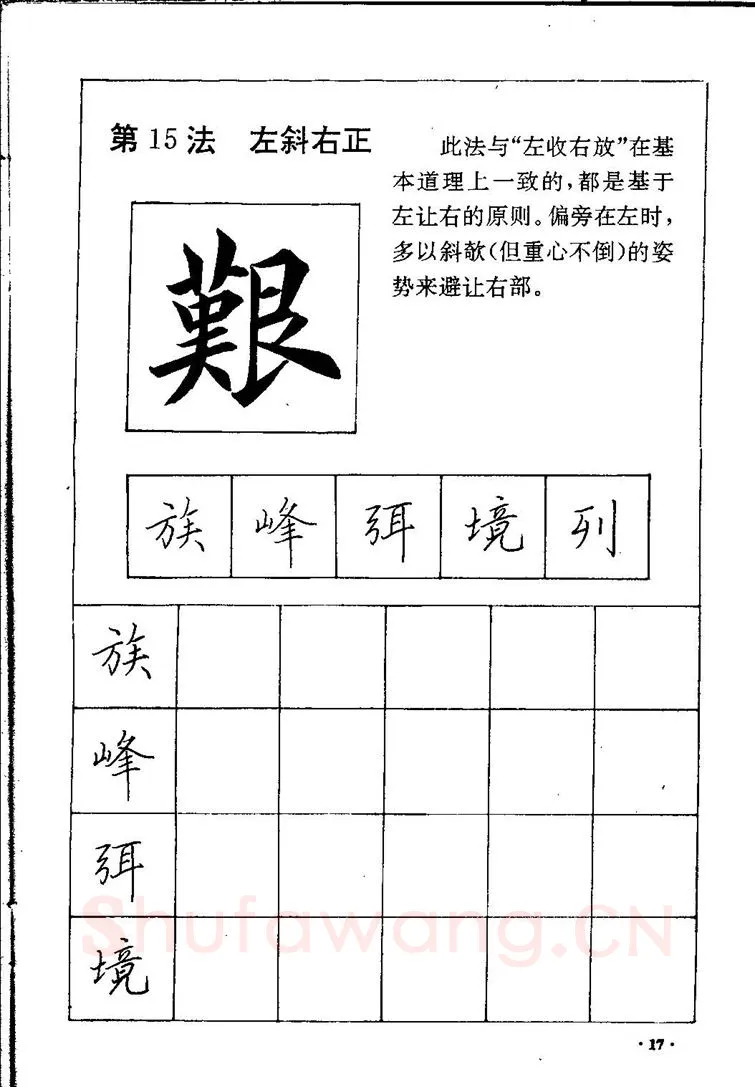 第15法 左斜右正
此法与“左收右放”在基
本道理上一致的,都是基于
左让右的原则。偏旁在左时,
多以斜欹(但重心不倒)的姿
势来避让右部。
艱
族 峰 弭 境 列
族
峰
弭
境
Shufawang.CN
·17·